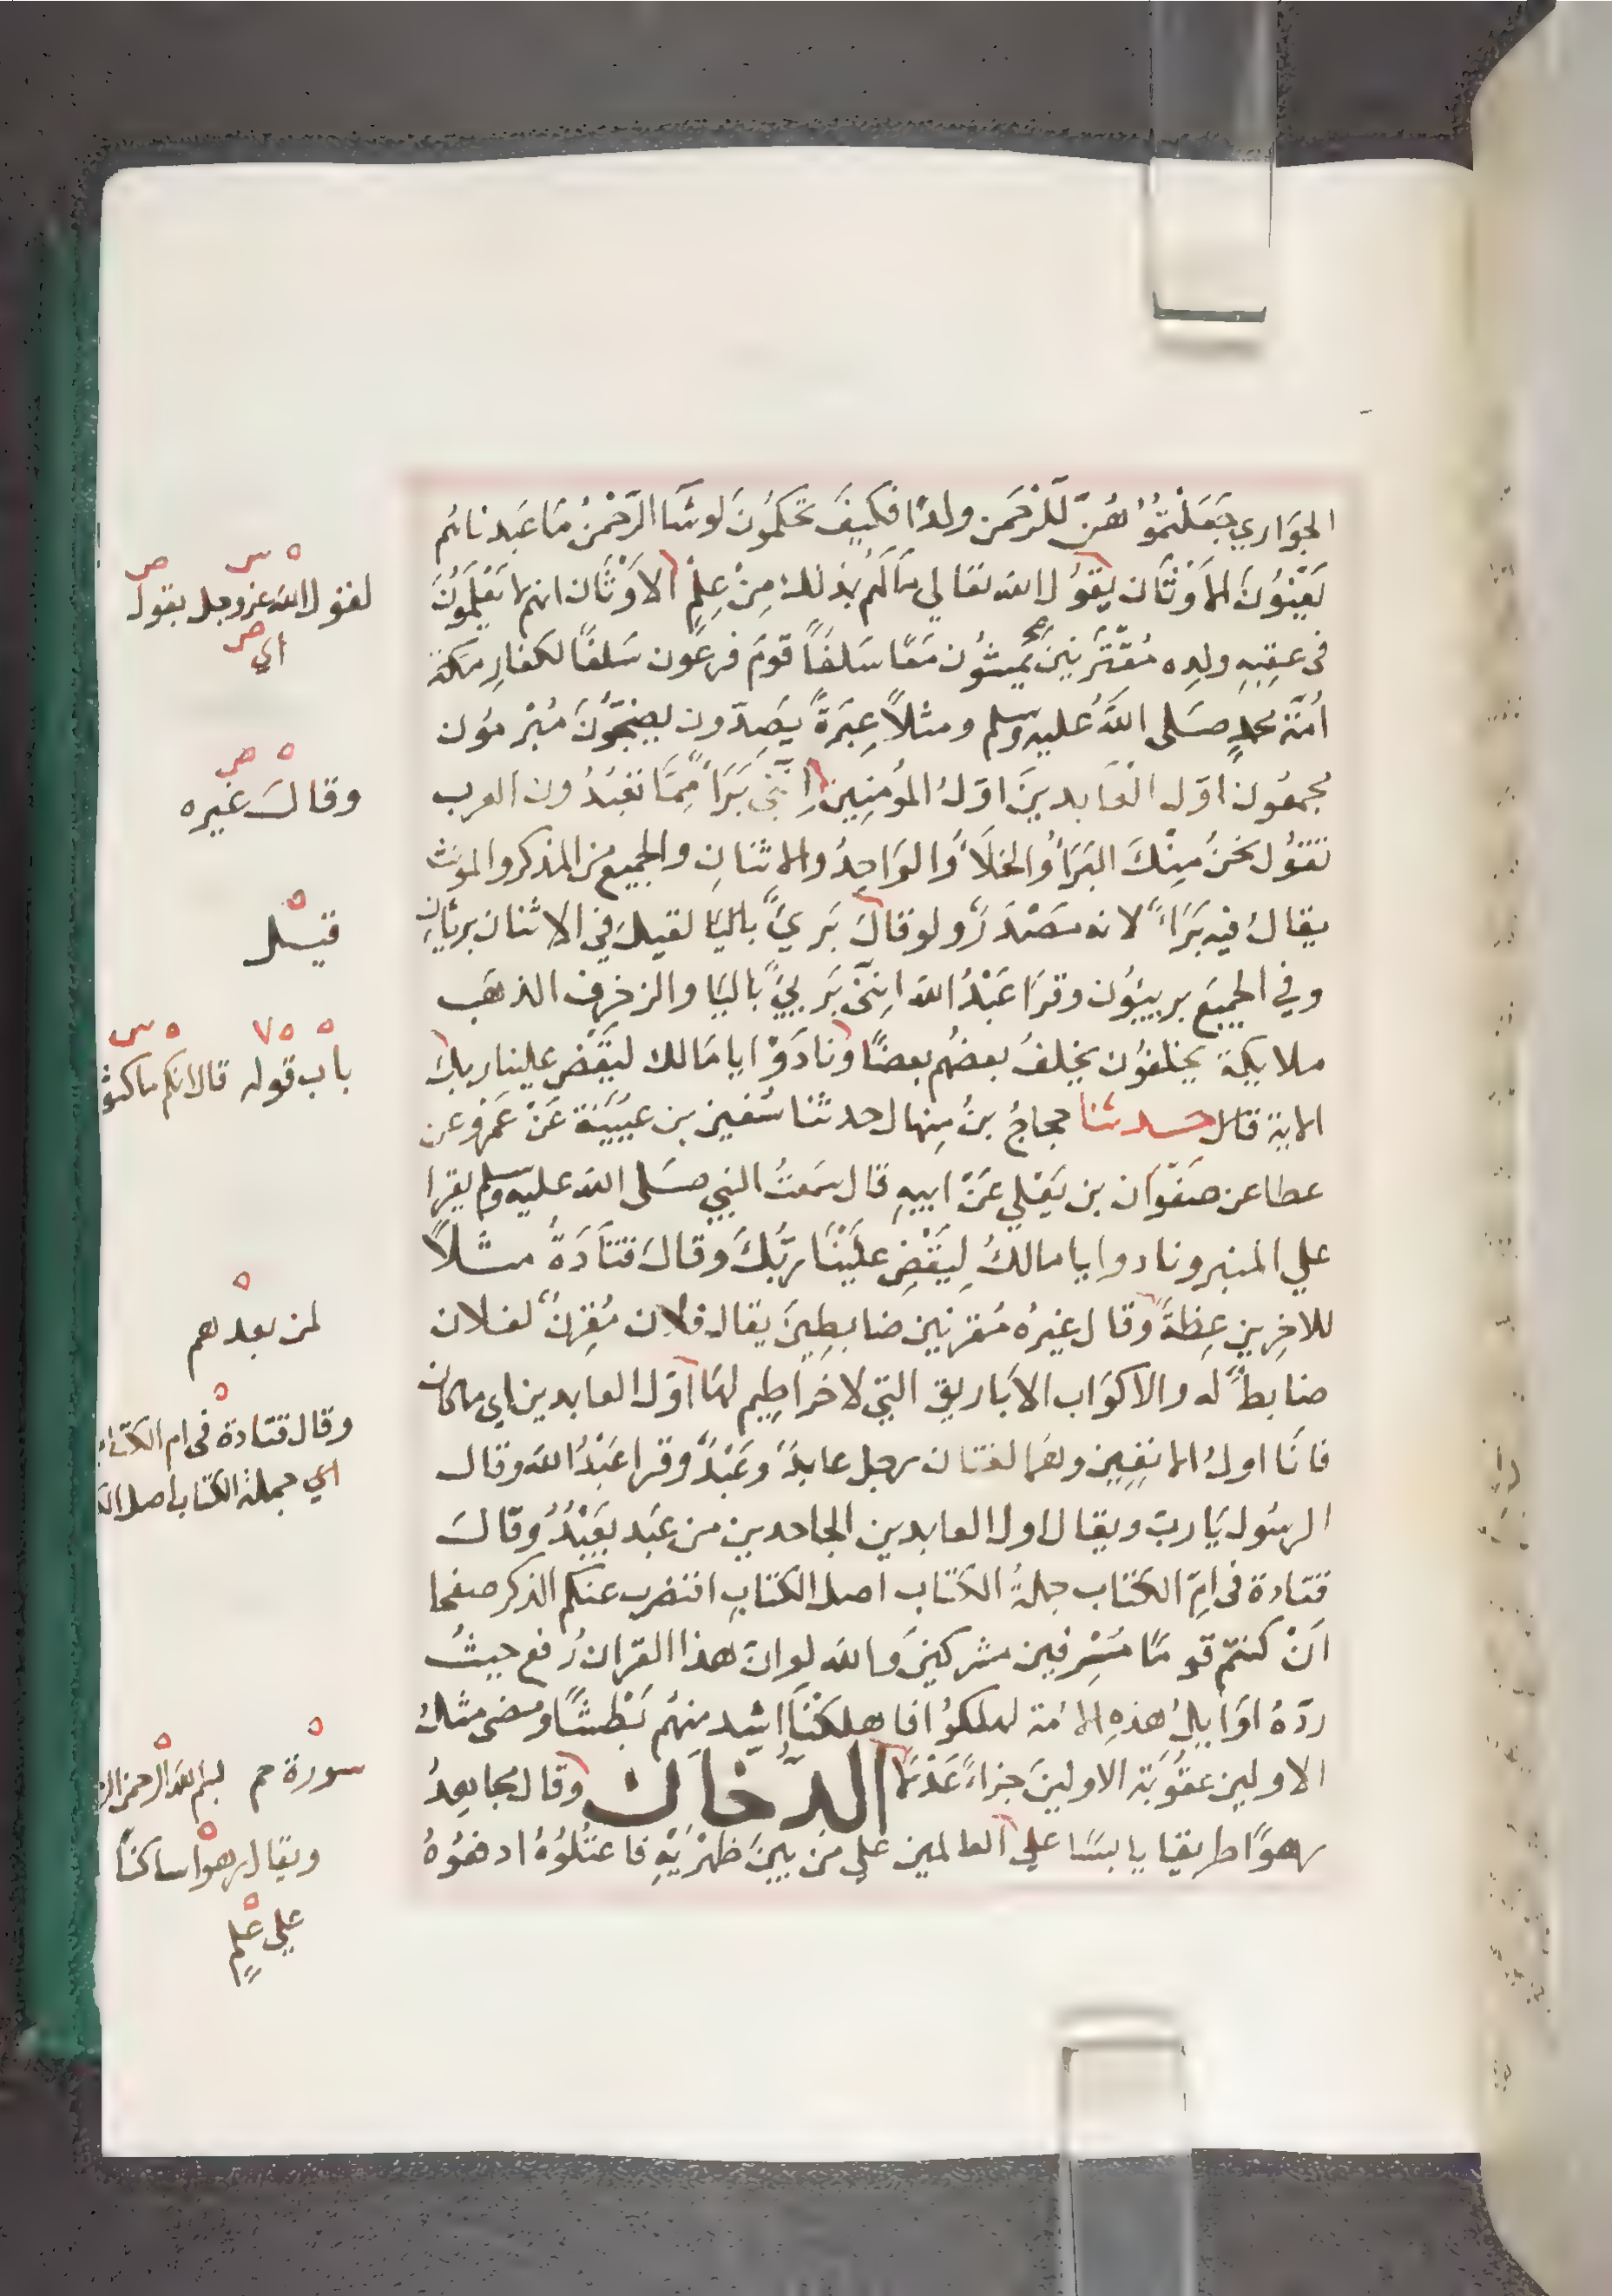 الجوَاري جَعَلْتمُوُ هُنّ لّلرّحمَن ولدًا فكيفَ تحكمُون لوشَآ الرّحمنُ مَا عَبدناهُم
يَعْنُونَ الاَوْثَان يقوُل الله تعَالي مَالَهُم بذلك مِنْ عِلِمٍ الاَوْثَان انهم لاَ يَعْلمَوُنَ
فى عقِبِهِ ولدِه مُقْتَرنينَ يمشُون مَعًا سَلفًا قومَ فرعَون سَلفًا لكفارِ مكة
اُمّة محمدٍ صَلى اللهُ عليه وسلم ومثلاً عِبَرَةً يَصِدّون يضِجُّونَ مُبْرمُون
مجمعُون اوّل العَابدينَ اوّلُ المؤمنِين اِنَّنى بَرَآءٌ مِّمَّا تعَبُدُون العرب
تقوُل نحَنُ مِنْكَ البَرَآُ والخلَآُ والوَاحِدُ والاثنانِ والجميع من المذكر والمونث
يقالُ فيه بَرَآءٌ لانه مَصْدَرٌ ولو قالَ بَرىٌ باليَا لقيلَ في الاثنان بريئانِ
وفي الجميَع برييُون وقرَا عَبْدُ الله اننى بَريٌ باليَا والزخرف الذهَب
ملايكة يخلفوُن يخلفُ بعضهُم بعضًا ونادَوْا يا مَالك ليَقْض علينا ربكَ
الاية قال حدثنا حجاجُ بنُ مِنهال حدثنا سُفين بن عُيَيْنة عَنْ عَمْرو عن
عطا عن صفوَان بن يَعْلي عَنْ ابيهِ قال سَمعتُ النبي صَلى الله عليه وسلم يقرا
علي المنبر ونادوا يا مالكُ لِيَقْضِ علَيْنَا ربُّكَ وقالَ قتَادَةُ مثلاً
للاخِرِين عِظةً وقال غيرُه مُقرنين ضابطِينَ يقال فلان مُقرِنٌ لفلان
ضابطٌ له والاكوَاب الاَباريق التي لا خرَاطِيم لهَا اوّل العابدين اي ماكان
فانَا اولُ الانفِين وهمَا لغتان رجل عابدٌ وعَبْدٌ وقرا عَبْدُ الله وقال
الرسُول يَا ربّ ويقال اول العابدين الجاحدين من عبَد يَعْبَدُ وقالَ
قتادة فى امِّ الكتاب جملةُ الكتاب اصل الكتابِ افنضرب عنكم الذكر صفحا
اَنْ كنتم قومًا مُسْرِفين مشركينَ والله لو ان هذا القران رُفع حيثُ
ردّهُ اوَايلُ هذهِ الامّة لهلكوُا فاهلكنَا اشد منهُم بَطْشًا ومضى مثلُ
الاولين عقوُبَة الاولينَ جزاءً عَدْلاً الدّخان وقال مجاهِدُ
رهوًا طريقا يابسًا علي العالمين علي مَن بينَ ظهْرَيْهِ فاعتُلوُهُ ادفعوُهُ
لقول الله عز وجل يقول
اي
وقالَ غيره
قيل
باب قوله قال انكم ماكثو
لمن بعدهم
وقال قتادة فى ام الكتاب
اي جملة الكتاب اصل
سورة حم بسم الله الرحمن
ويقال رهوا ساكنًا
علي علمٍ